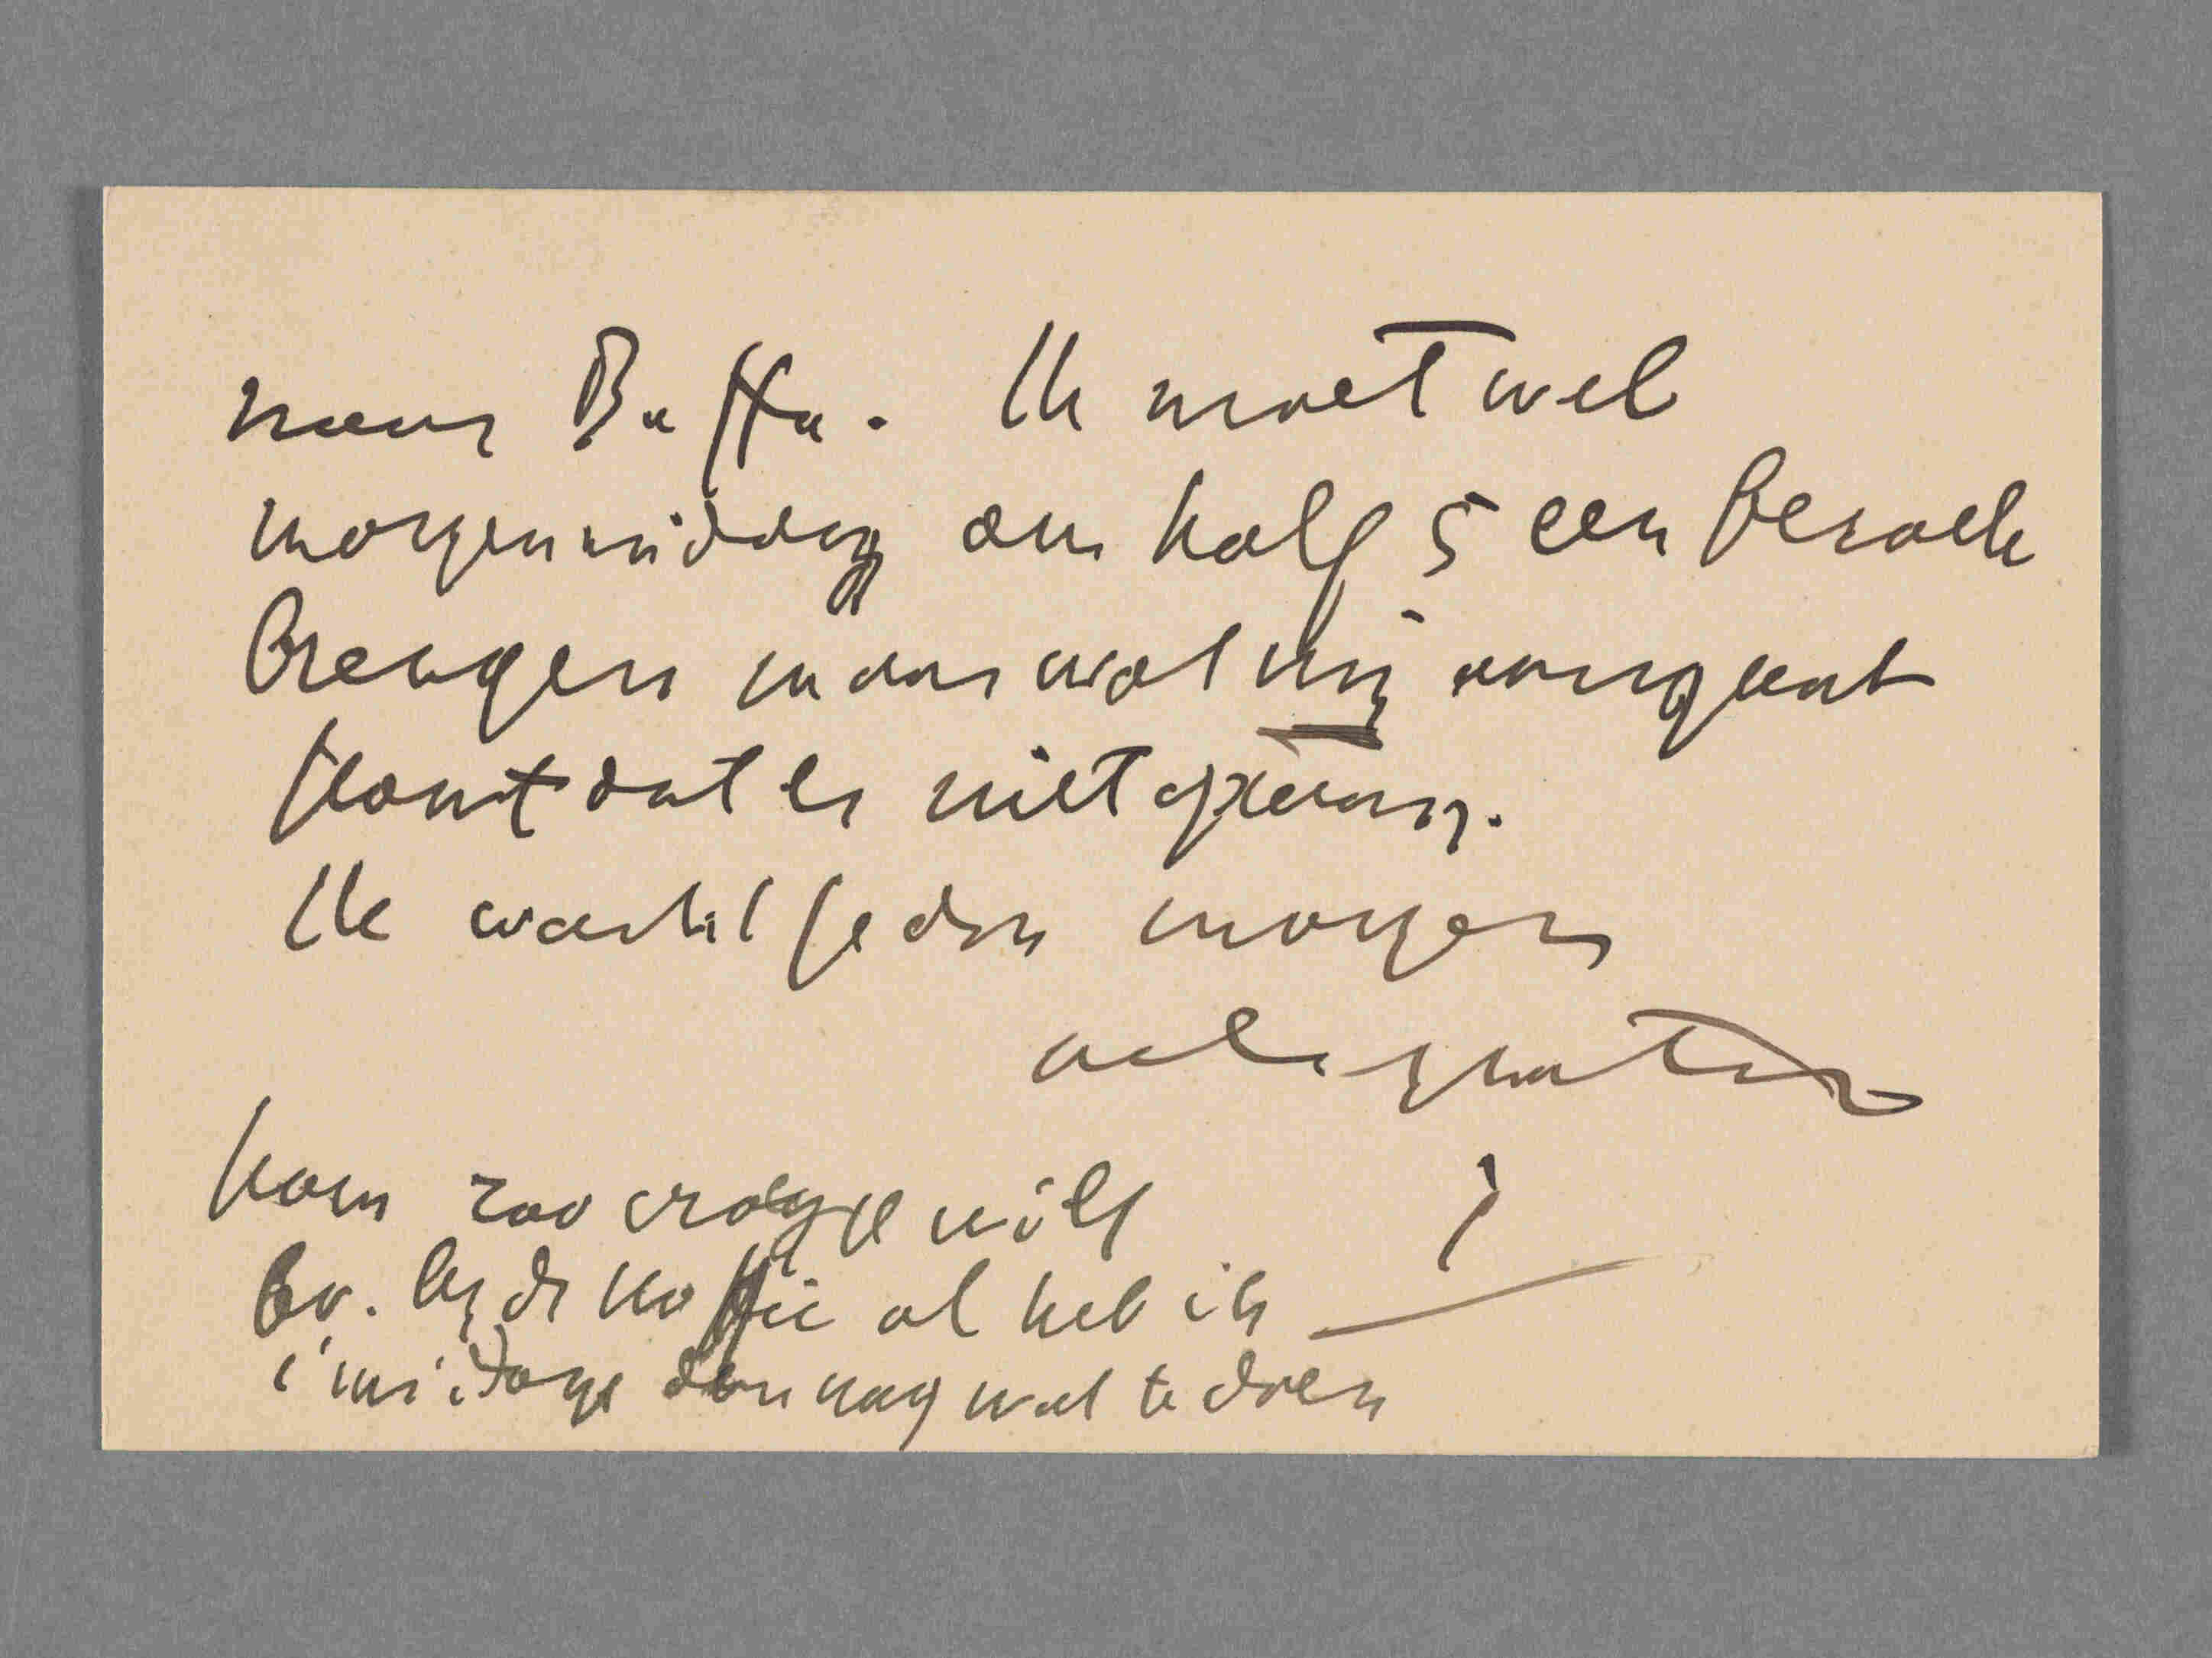 naar Buffa. Ik moet wel
morgenmiddag om half 5 een bezoek
brengen maar wat mij aangaat
komt dat er niet op aan.
Ik wacht je dan morgen
vele groeten
J
kom zoo vroeg je wilt
bv. bij de koffie al heb ik
's middags dan nog wat te doen